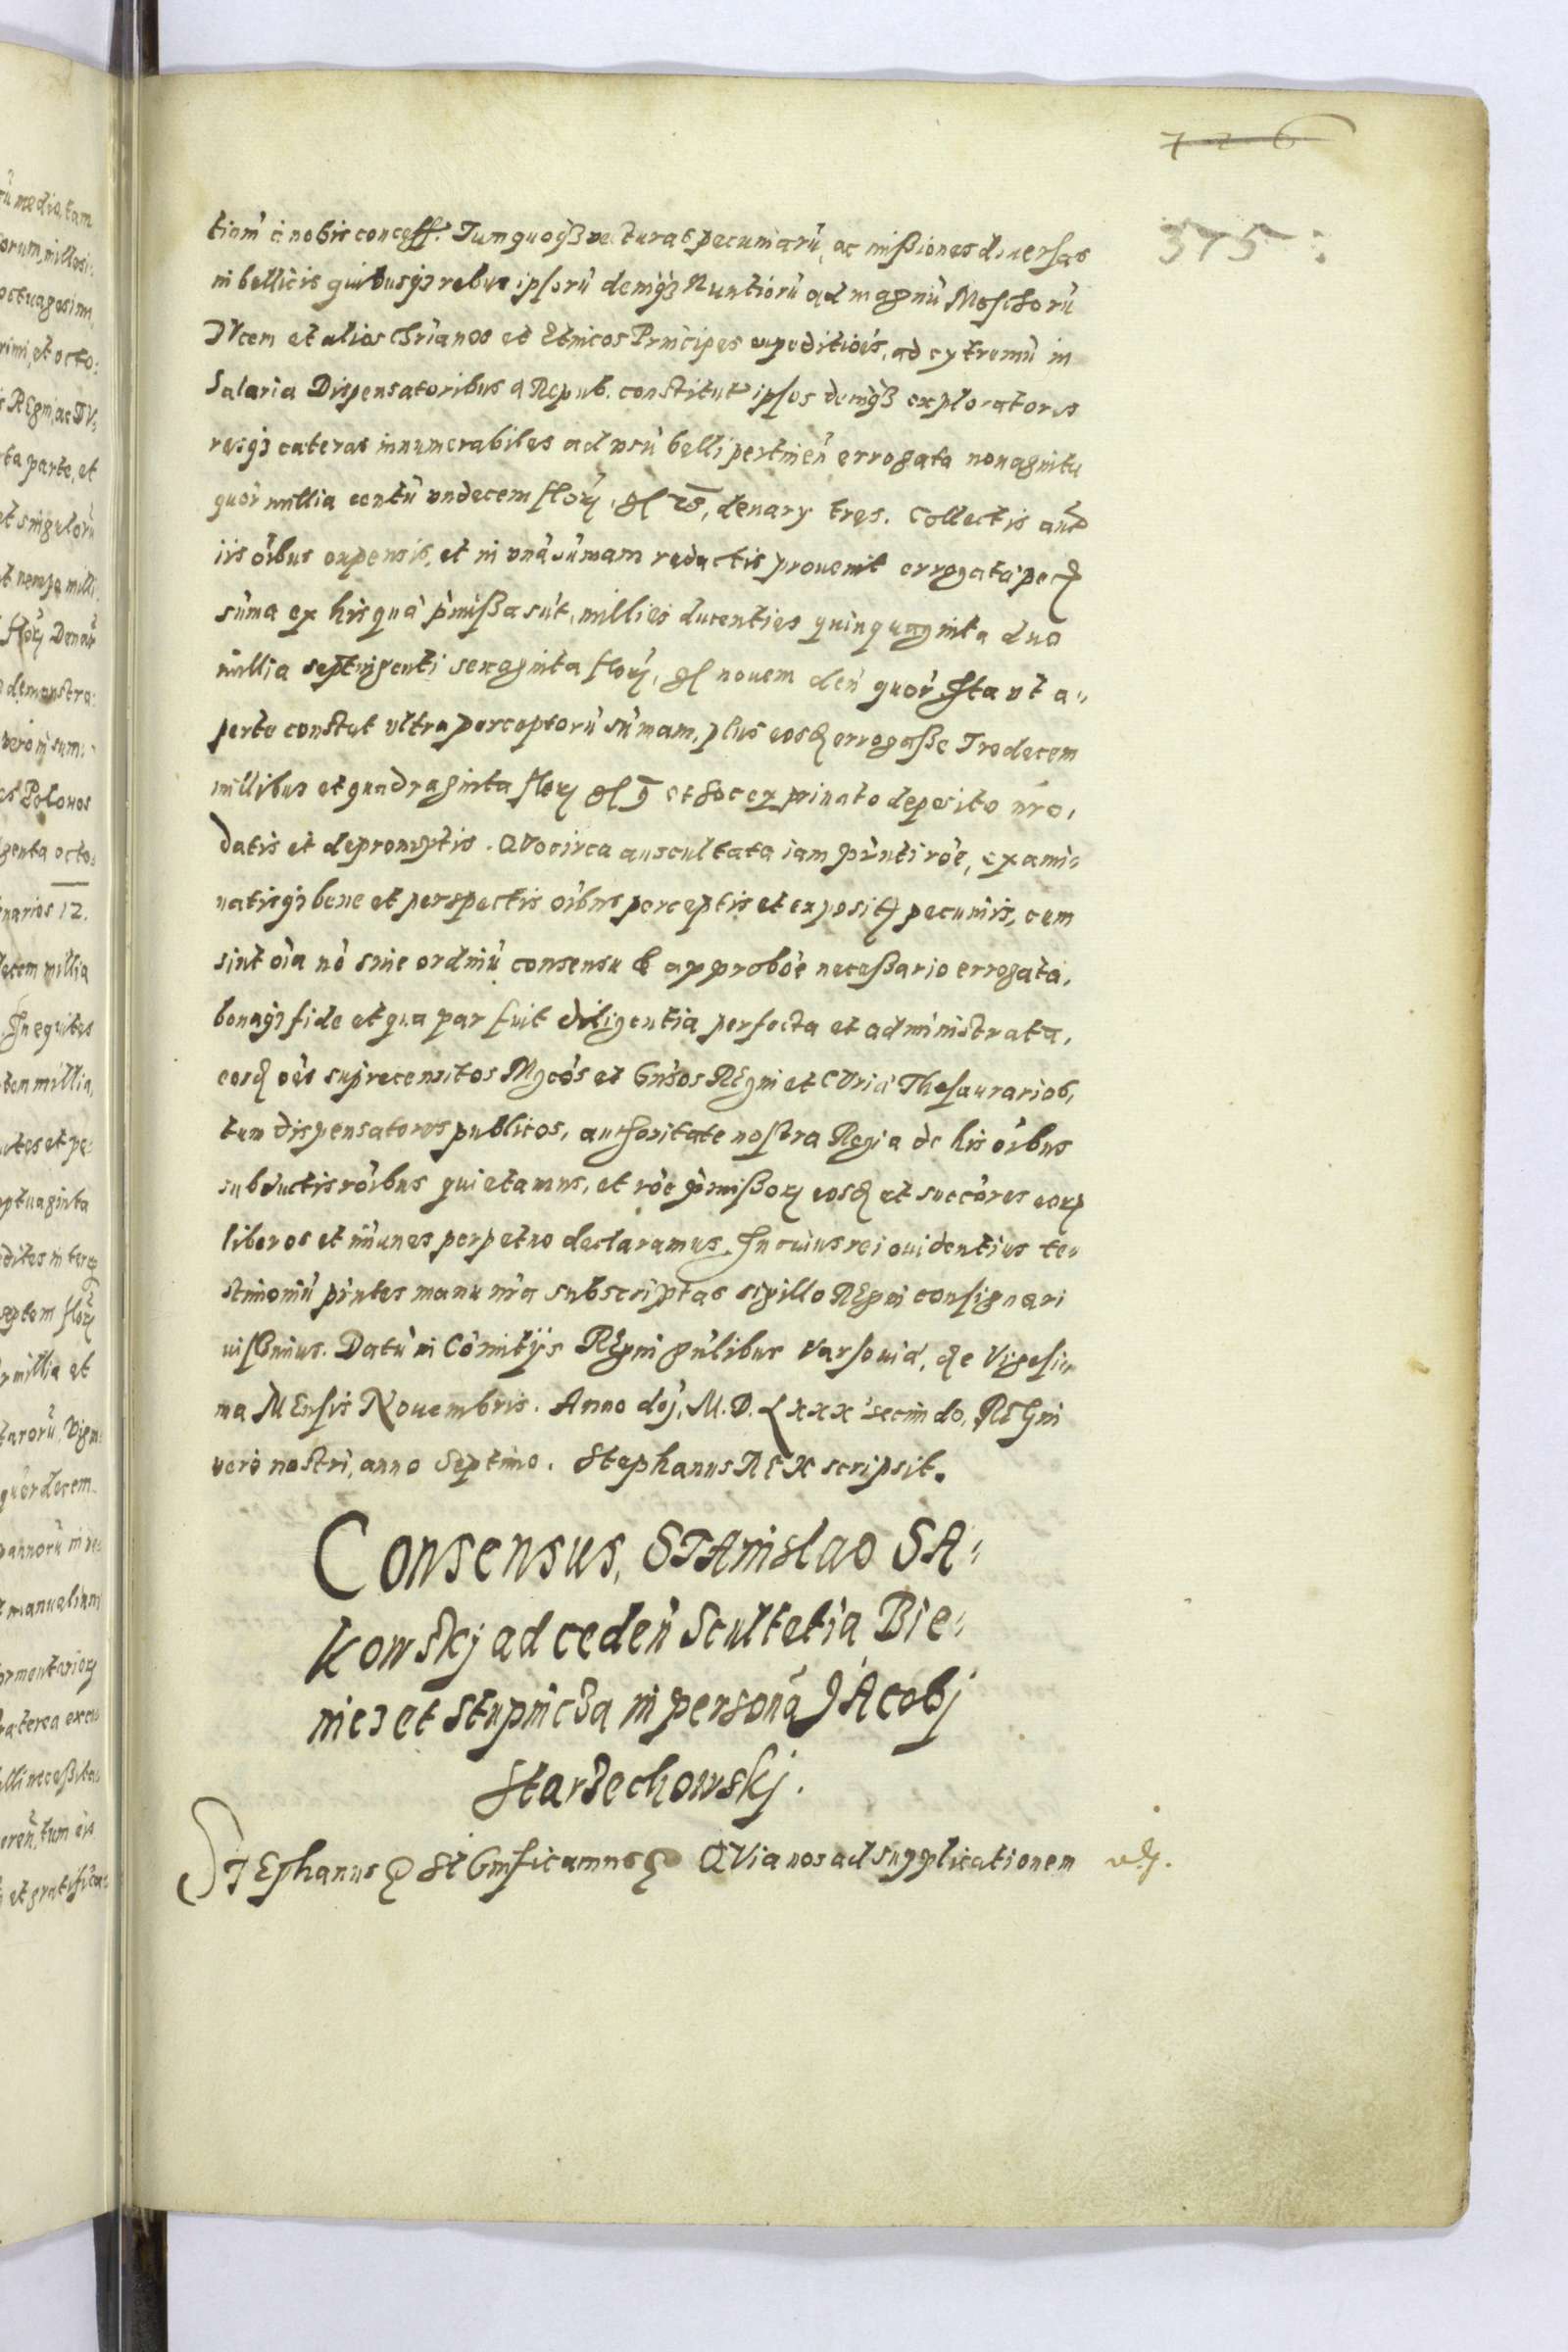 726
375
tiam a nobis concess. Tum quoqʒ vecturas pecuniarũ, ac missiones diversas
in bellicis quibusqʒ rebus ipsorũ deniqʒ Nuntiorũ ad magnũ Moschorũ
DVcem et alios Chrianos et Etnicos Principes expeditiois, ad extremũ in
Salaria Dispensatoribus a Repub. constitut ipsos deniqʒ exploratores
resqʒ cateras innumerabiles ad usũ belli pertineñ errogata nonaginta
quor millia centũ undecem flor, denary tres. Collectis aut
iis oibus expensis, et in unã sũmam redactis provenit errogata pec
sũma ex his qua pmissa sũt, millies ducenties quinquaginta duo
millia septingenti sexaginta flor, novem deñ quor Ita ut a-
perte constat ultra perceptorũ sũmam, plus eosd errogasse Tredecem
millibus et quadraginta flor et hoc ex privato deposito nro,
datis et depromptis. QVocirca auscultata iam pñti roe, exami-
natisqʒ bene et perspectis oibus perceptis et exposit pecuniis, cem
sint oia nõ sine ordinũ consensu & approboe necessario errogata,
bonaqʒ fide et qua par fuit diligentia perfecta et administrata,
eosd oes suprecensitos Mgcos et Gnsos REgni et CVria Thesaurarios,
tum dispensatores publicos, authoritate nostra Regia de his oibus
subductis roibus quietamus, et roe pmissor eosd et succores eor
liberos et imunes perpetuo declaramus. In cuius rei evidentius te-
stimoniũ pñtes manu nra subscriptas sigillo REgni consignari
iussimus. Datũ in Comitijs REgni gnlibus Varsovia, de Vigesi-
ma MEnsis Novembris. Anno doj, M. D. Lxxx secundo, REGni
vero nostri, anno Septimo. Stephanus REX scripsit.
Consensus, STAnislao SA-
kowskj ad cedeñ Scultetia Bie-
niec et Stupnicza in personã JAcobj
Starzechowskj.
STEphanus Significamus QVia nos ad supplicationem